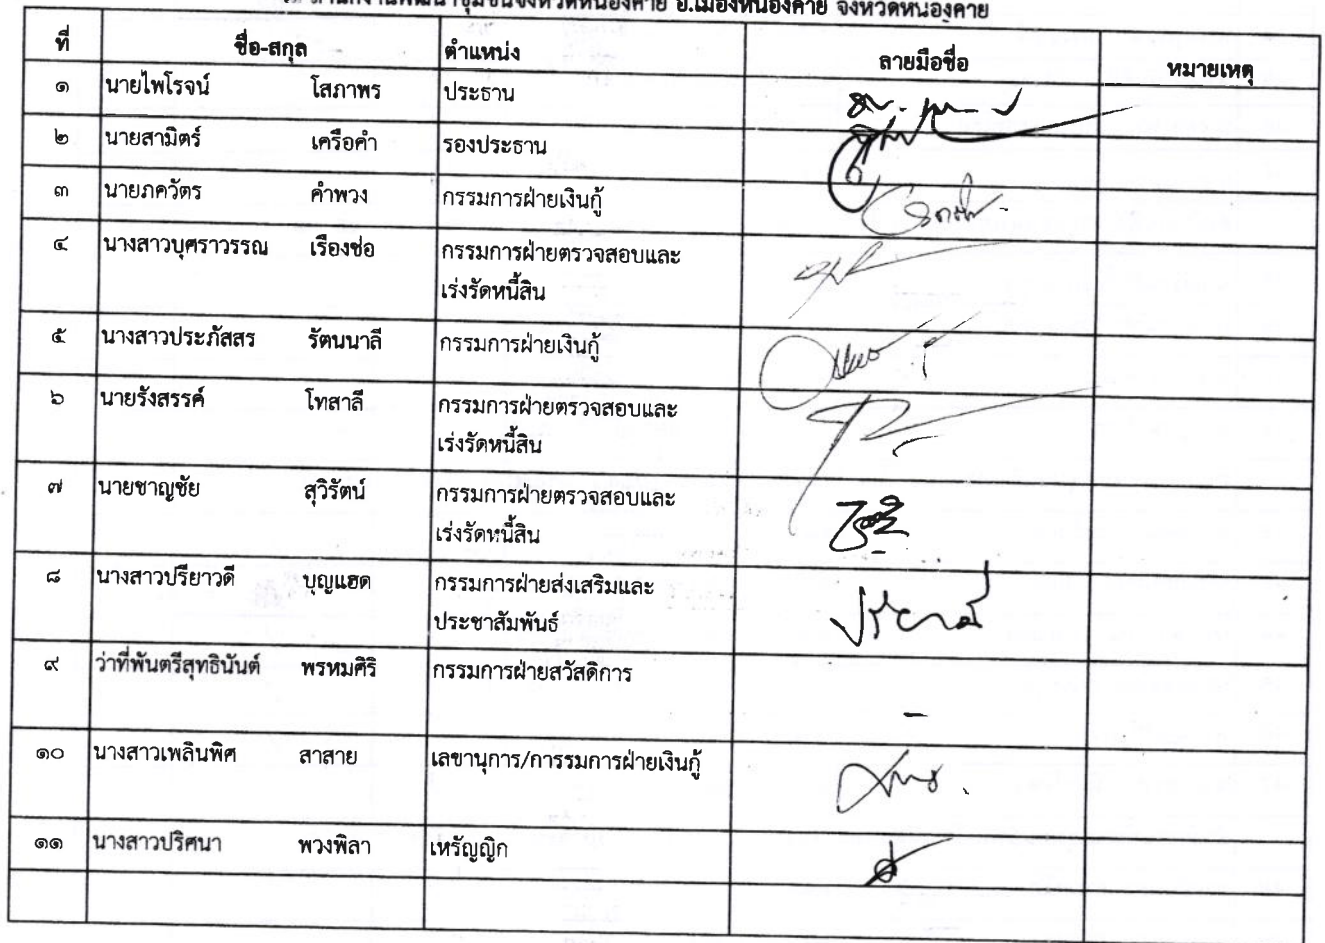 ณ สำนักงานพัฒนาชุมชนจังหวัดหนองคาย อ.เมืองหนองคาย จังหวัดหนองคาย
ที่ ชื่อ-สกุล ตำแหน่ง ลายมือชื่อ หมายเหตุ
๑ นายไพโรจน์ โสภาพร ประธาน
๒ นายสามิตร์ เครือคำ รองประธาน
๓ นายภควัตร คำพวง กรรมการฝ่ายเงินกู้
๔ นางสาวบุศราวรรณ เรืองช่อ กรรมการฝ่ายตรวจสอบและ
เร่งรัดหนี้สิน
๕ นางสาวประภัสสร รัตนนาลี กรรมการฝ่ายเงินกู้
๖ นายรังสรรค์ โทสาลี กรรมการฝ่ายตรวจสอบและ
เร่งรัดหนี้สิน
๗ นายชาญชัย สุวิรัตน์ กรรมการฝ่ายตรวจสอบและ
เร่งรัดหนี้สิน
๘ นางสาวปรียาวดี บุญแฮด กรรมการฝ่ายส่งเสริมและ
ประชาสัมพันธ์
๙ ว่าที่พันตรีสุทธินันต์ พรหมศิริ กรรมการฝ่ายสวัสดิการ -
๑๐ นางสาวเพลินพิศ สาสาย เลขานุการ/การรมการฝ่ายเงินกู้
๑๑ นางสาวปริศนา พวงพิลา เหรัญญิก